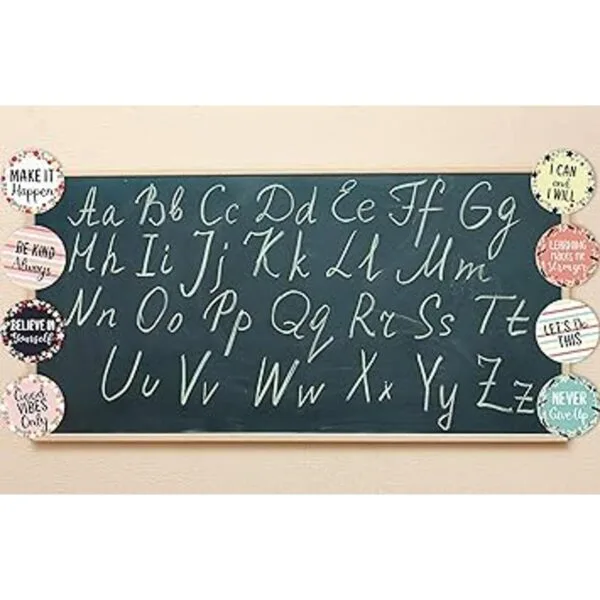 MAKE IT
Happen
BE KIND
Always
BELIEVE IN
Yourself
Good
VIBES
Only
Aa Bb Cc Dd Ee Ff Gg
Hh Ii Jj Kk Ll Mm
Nn Oo Pp Qq Rr Ss Tt
Uu Vv Ww Xx Yy Zz
I CAN
and
I WILL
LEARNING
makes me
Stronger
LET'S DO
THIS
NEVER
Give Up